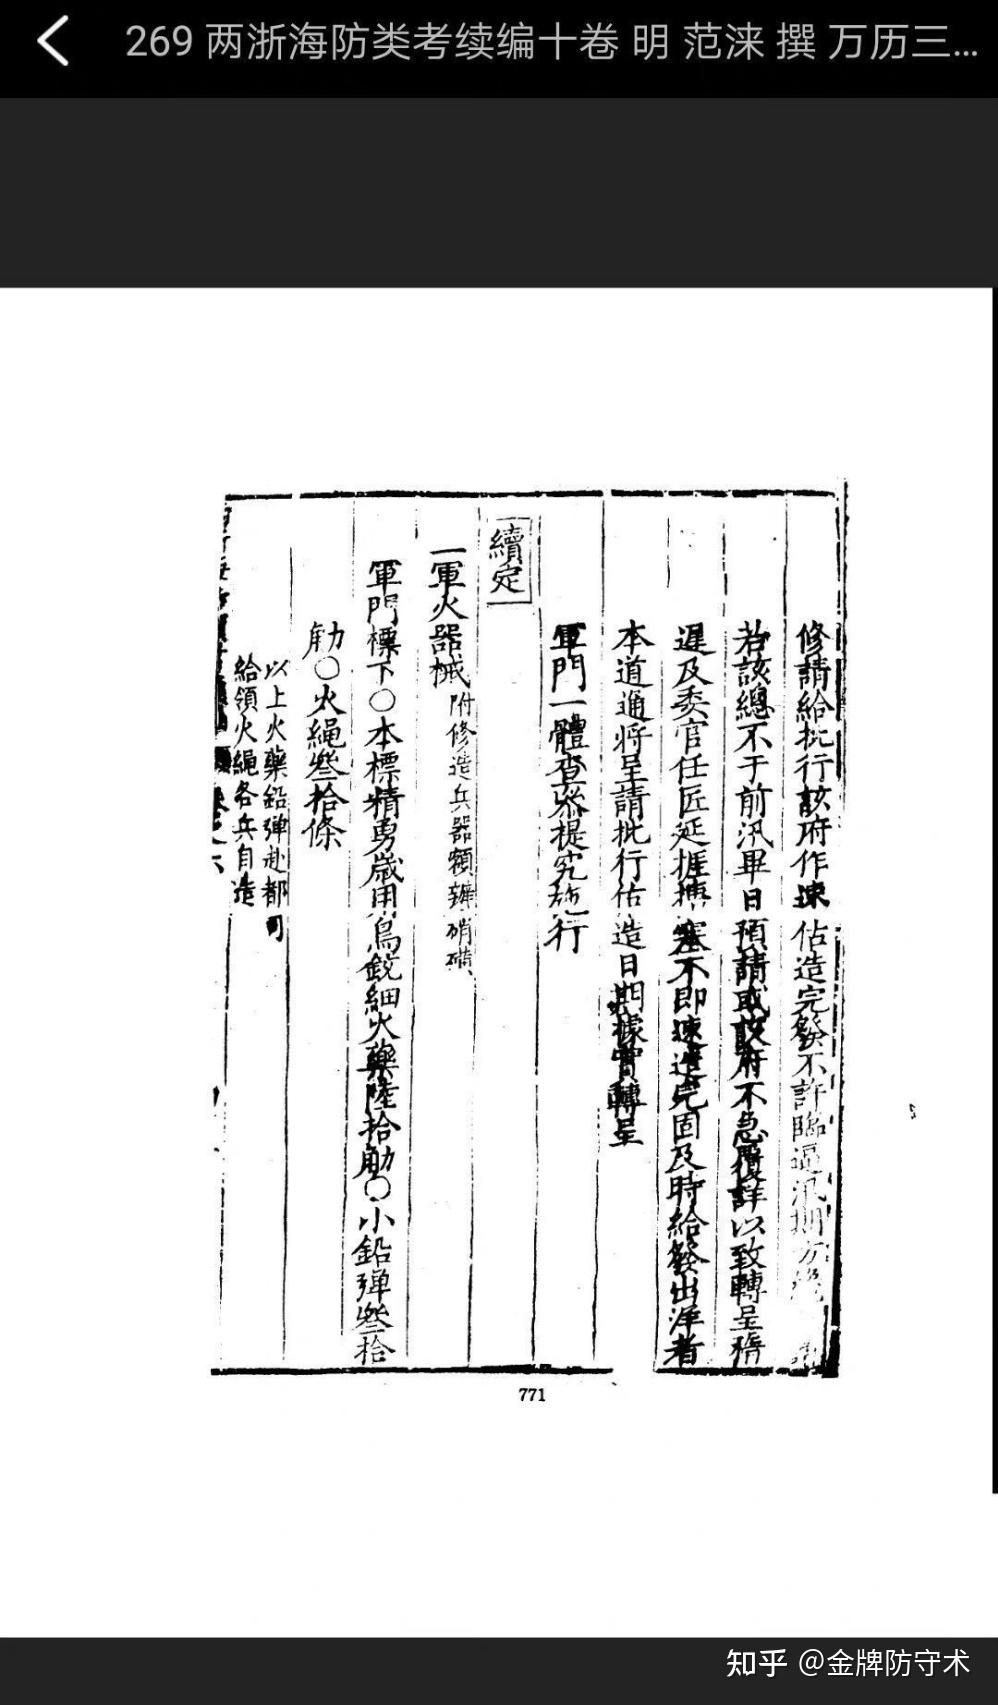 269 两浙海防类考续编十卷 明 范涞 撰 万历三...
修請給批行該府作速估造完發不許臨逼汛期方
若該總不于前汛畢日預請或該府不急覆詳以致轉呈稽
遲及委官任匠延捱搪塞不即速造完固及時給發出洋者
本道通將呈請批行估造日期據實轉呈
軍門一體查叅提究施行
續定
一軍火器械附修造兵器額辦硝磺
軍門標下〇本標精勇歲用鳥銃細火藥陸拾觔〇小鉛弹叁拾
觔〇火繩叁拾條
以上火藥鉛弹赴都司
給領火繩各兵自造
卷之六
771
知乎 @金牌防守术